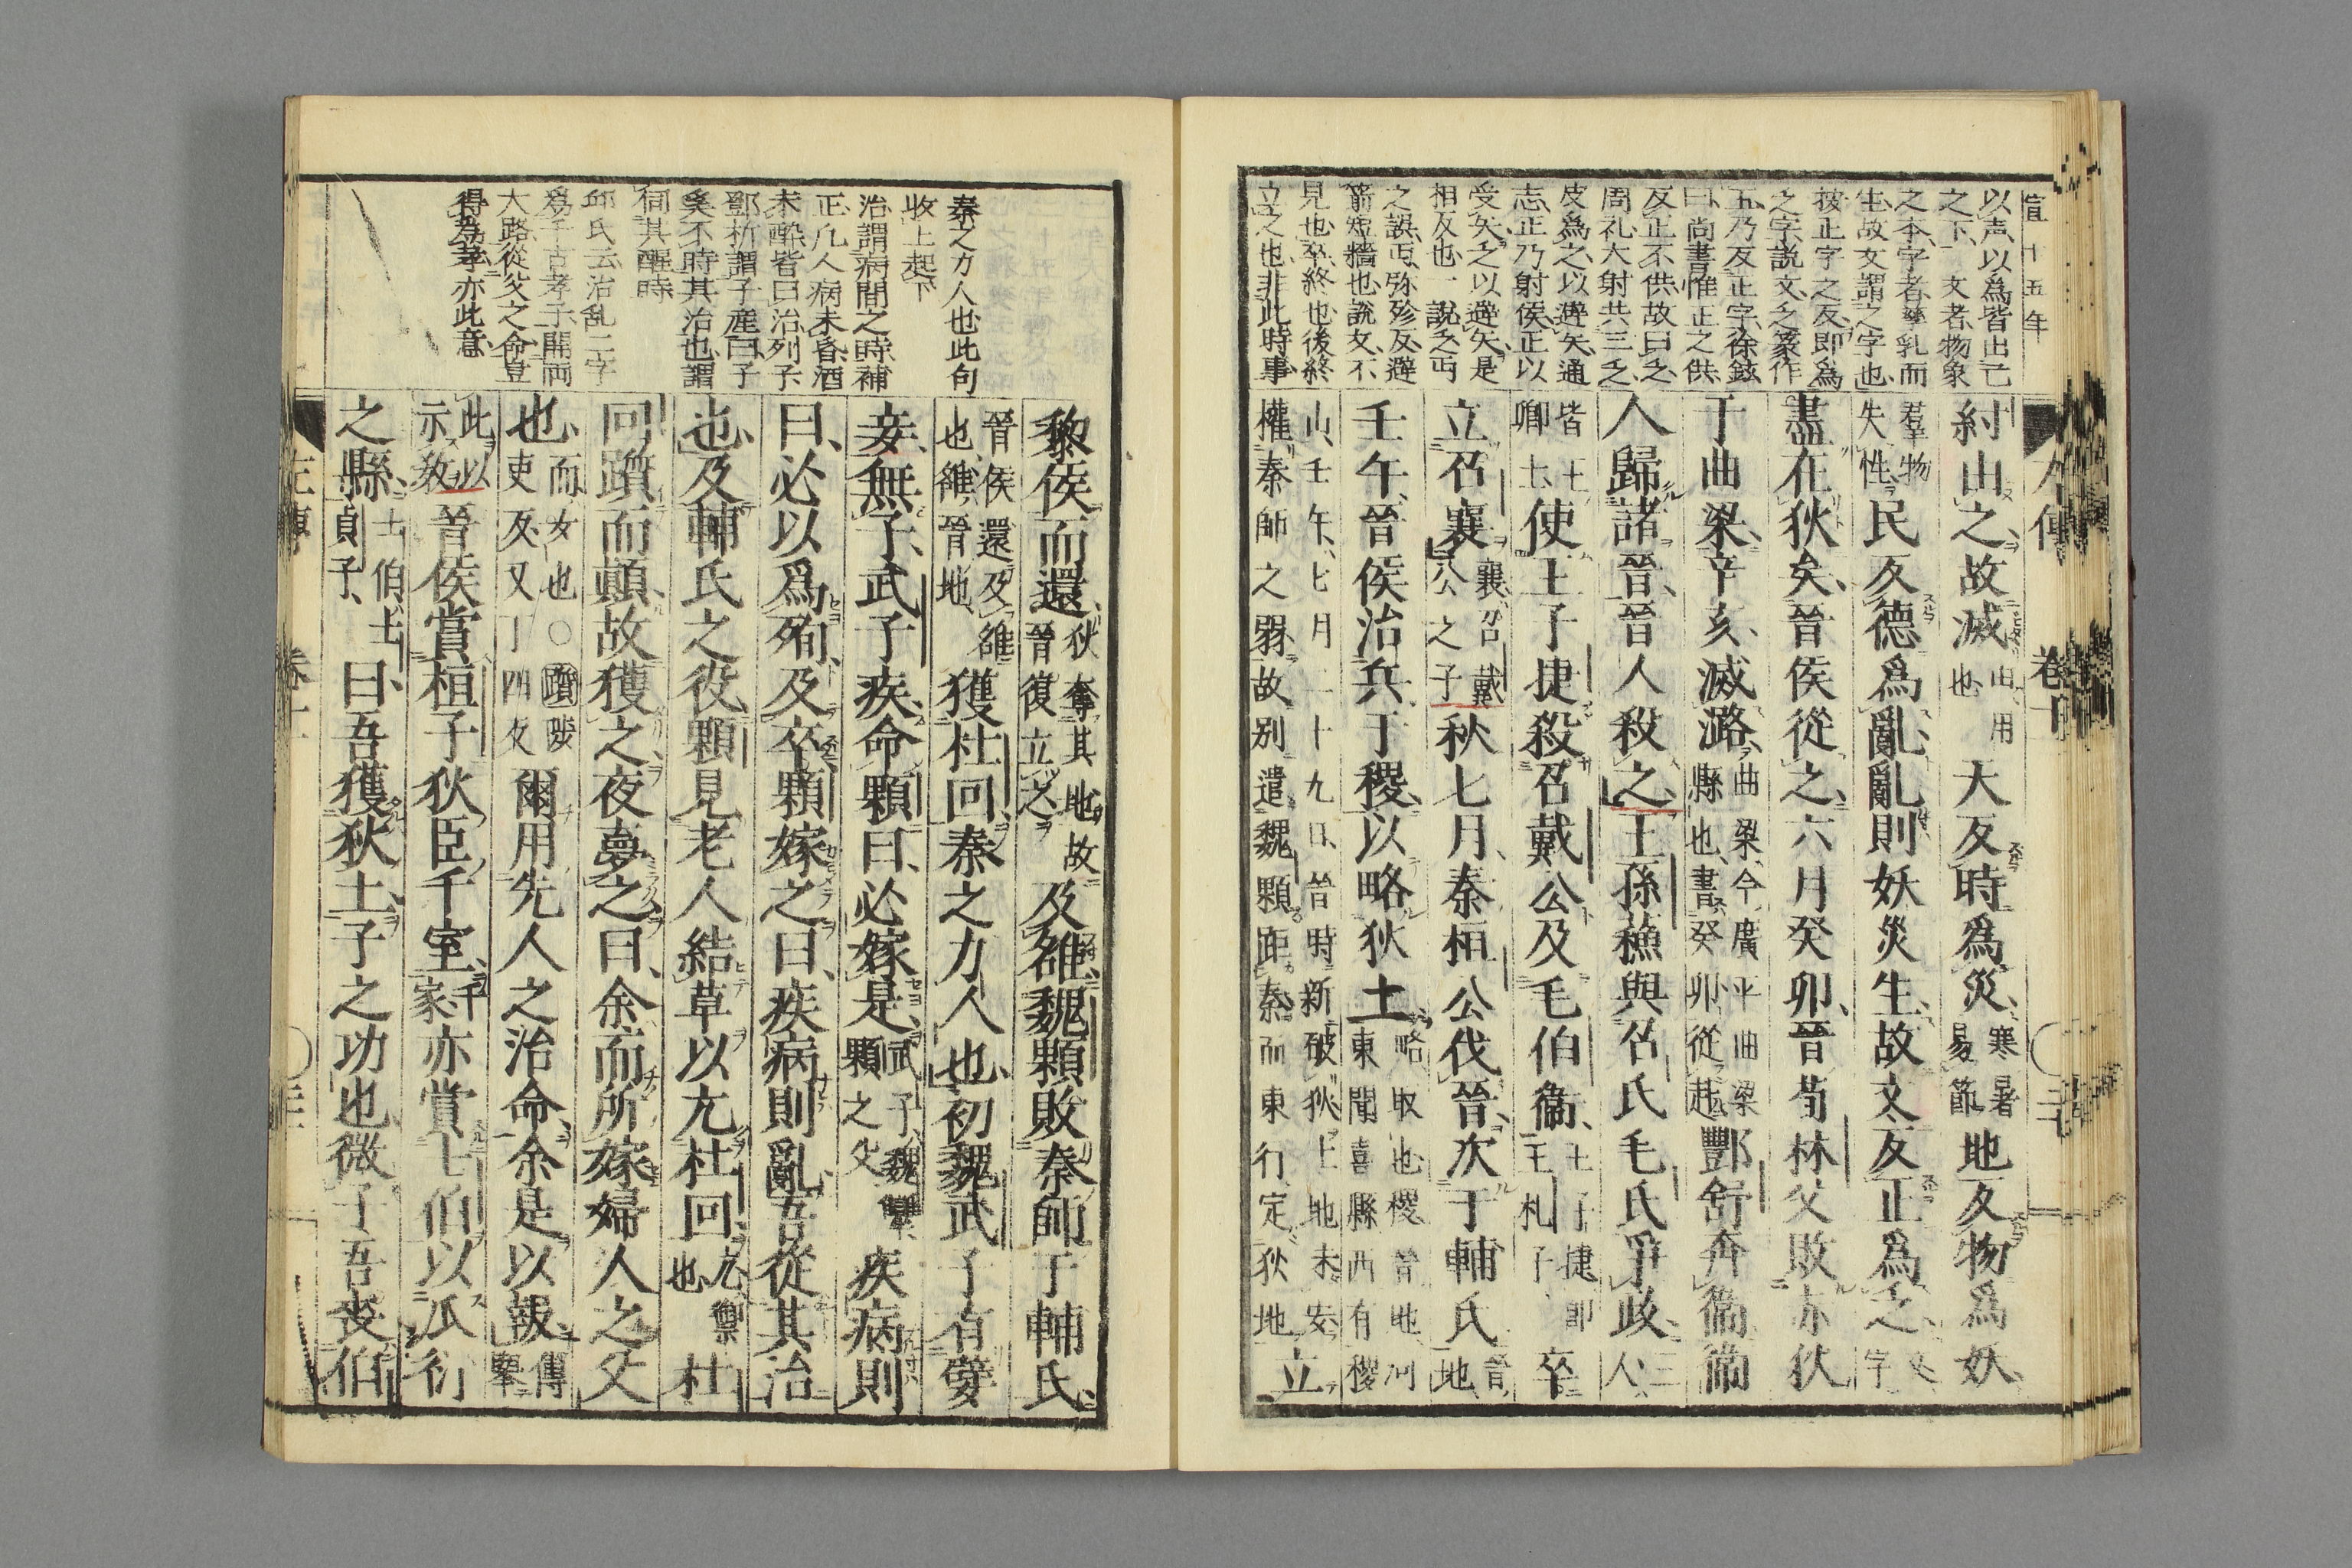 宣十五年
以声、以為皆出已
之下、文者、物象
之本、字者、孳乳而
生、故文謂之字也、
按正字之反即為
之字、説文、乏篆作
五、乃反正字、徐鉉
曰、尚書惟正之供、
反正不供、故曰乏、
周礼大射共三乏、
皮為之、以避矢、通
志、正乃射侯、正以
受矢、乏以避矢、是
相反也、一説乏丏
之誤、丏、弥殄反、避
箭短牆也、説文、不
見也、卒、終也、後終
立之也、非此時事
左傳 卷十一
紂由之、故滅、由、用也、天反時為災、寒暑易節、地反物為妖、
羣物失性、民反德為亂、亂則妖災生、故文反正為乏、文字
盡在狄矣、晉侯從之、六月癸卯、晉荀林父敗赤狄
于曲梁、辛亥、滅潞、曲梁、今廣平曲梁縣也、書癸卯、從赴、酆舒奔衛、衛
人歸諸晉、晉人殺之、王孫蘇與召氏毛氏爭政、三人、
皆王卿士、使王子捷殺召戴公及毛伯衛、王子捷、即王札子、卒
立召襄、襄、召戴公之子、秋七月、秦桓公伐晉、次于輔氏、晉地、
壬午、晉侯治兵于稷、以略狄土、略、取也、稷、晉地、河東聞喜縣西有稷
山、壬午、七月二十九日、晉時新破狄、土地未安、權秦師之弱、故別遣魏顆距秦、而東行定狄地、立
黎侯而還、狄奪其地、故晉復立之、及雒、魏顆敗秦師于輔氏、
晉侯還及雒也、雒、晉地、獲杜回、秦之力人也、初魏武子有嬖
妾、無子、武子疾、命顆曰、必嫁是、武子、魏犨、顆之父、疾病則
曰、必以為殉、及卒、顆嫁之曰、疾病則亂、吾從其治
也、及輔氏之役、顆見老人結草以亢杜回、亢、禦也、杜
回躓而顛、故獲之、夜夢之曰、余而所嫁婦人之父
也、而、女也、○躓、陟吏反、又丁四反、爾用先人之治命、余是以報、傳舉
此以示教、晉侯賞桓子狄臣千室、千家、亦賞士伯以瓜衍
之縣、士伯、士貞子、曰、吾獲狄土、子之功也、微子吾喪伯
秦之力人也、此句
收上起下
治謂病間之時、補
正、凡人病未昏、酒
未酔、皆曰治、列子、
鄧析謂子産曰、子
奚不時其治也、謂
伺其醒時
邱氏云、治乱二字
為千古孝子開両
大路、從父之命、豈
得為孝、亦此意、
左傳 卷十一